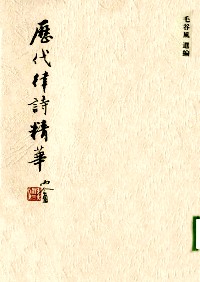 毛谷風 選編
歷代律詩精華